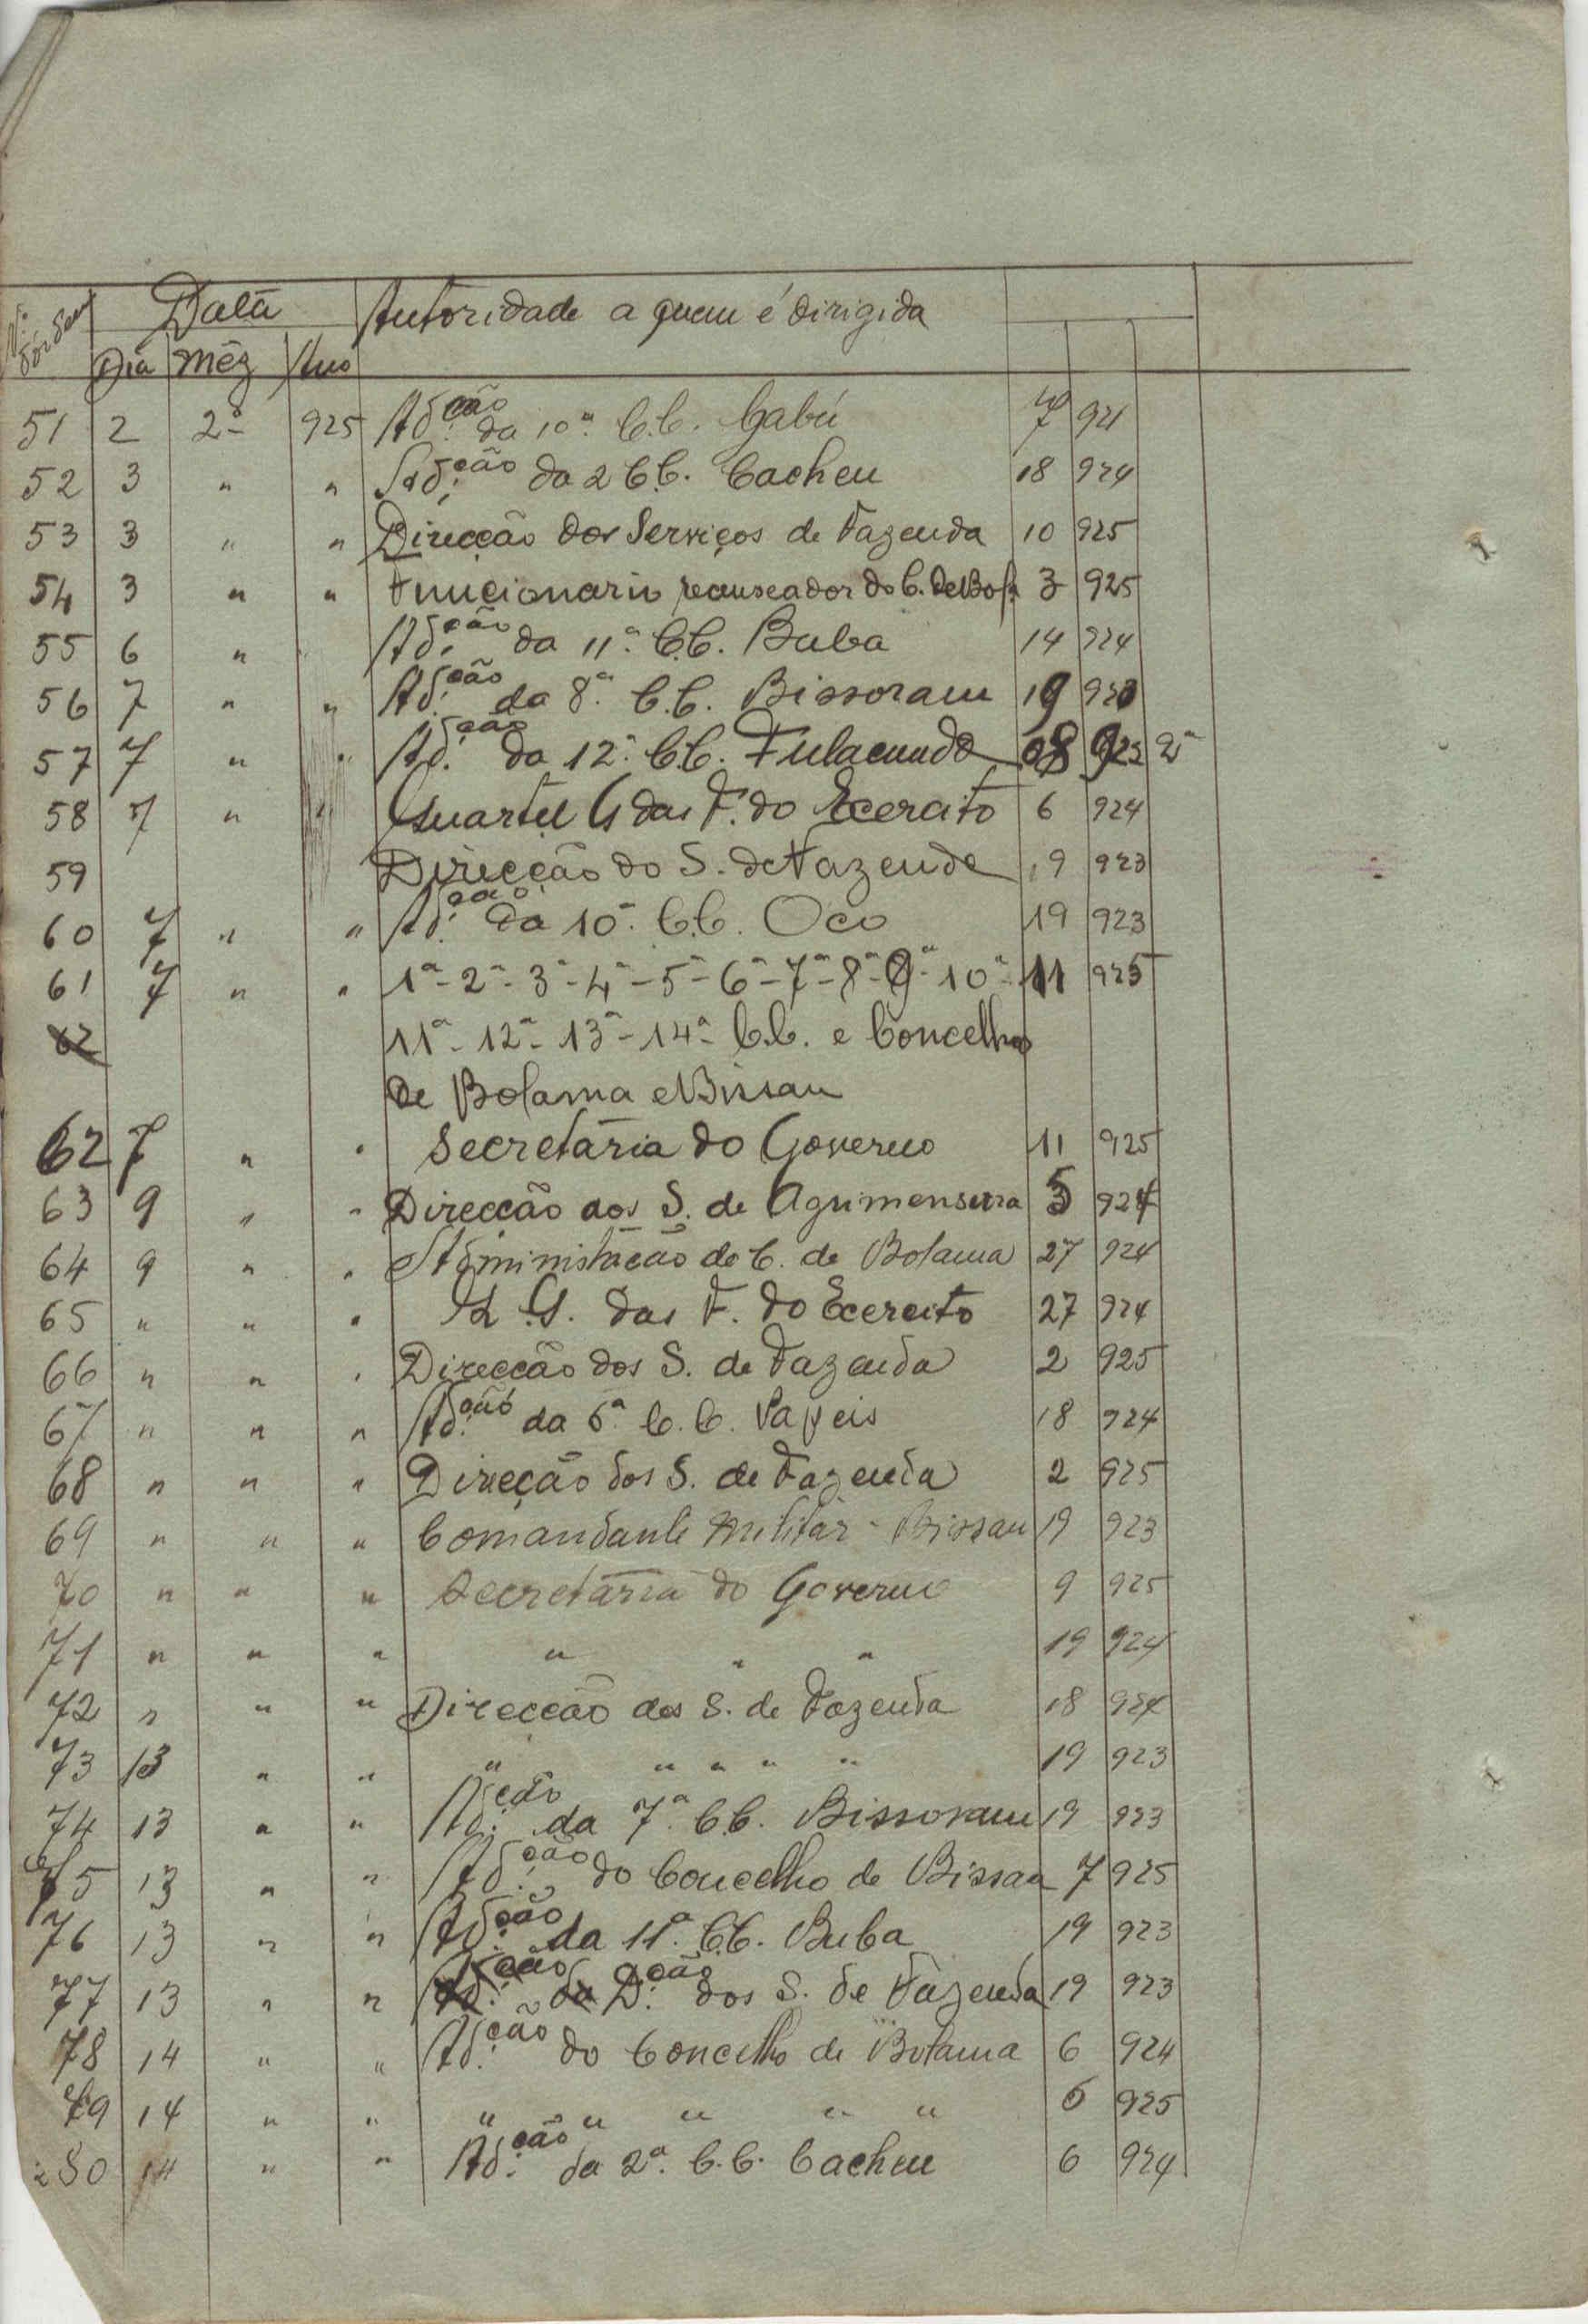 Nº d'órdem Data Autoridade a quem é dirigida
Dia Mêz Ano
51 2 2º 925 Adm.ção da 10ª C.C. Gabú 7 924
52 3 " " Ad.ção da 2 C.C. Cacheu 18 924
53 3 " " Direcção dos Serviços de Fazenda 10 925
54 3 " " Funcionario recenseador do C. de Bol. 3 925
55 6 " Ad.ção da 11ª C.C. Buba 14 924
56 7 " " Ad.ção da 8ª C.C. Bissoram 19 923
57 7 " " Ad.ção da 12ª C.C. Fulacunda 18 923 2ª
58 7 " " Quartel G das F. do Ecercito 6 924
59 Direcção do S. de Fazenda 19 923
60 7 " " Ad.ção da 10ª C.C. Oco 19 923
61 7 " " 1ª - 2ª - 3ª - 4ª - 5ª - 6ª - 7ª - 8ª - 9ª - 10ª - 11 925
62 11ª - 12ª - 13ª - 14ª C.C. e Concelhos
de Bolama e Bissau
62 7 " " Secretaria do Governo 11 925
63 9 " " Direcção dos S. de Agrimensura 5 924
64 9 " " Administação do C. de Bolama 27 924
65 " " " Q. G. das F. do Ecercito 27 924
66 " " " Direcção dos S. de Fazenda 2 925
67 " " " Ad.ção da 6ª C.C. Papeis 18 924
68 " " " Direcção dos S. de Fazenda 2 925
69 " " " Comandante Militar - Bissau 19 923
70 " " " Secretaria do Governo 9 925
71 " " " " " " 19 924
72 " " " Direccão dos S. de Fazenda 18 924
73 13 " " " " " " " 19 923
74 13 " " Ad.ção da 7ª C.C. Bissoram 19 923
75 13 " " Ad.ção do Concelho de Bissau 7 925
76 13 " " Ad.ção da 11ª C.C. Buba 19 923
77 13 " " Ad.ção da D.ção dos S. de Fazenda 19 923
78 14 " " Ad.ção do Concelho de Bolama 6 924
79 14 " " " " " " " 6 925
80 14 " " Ad.ção da 2ª C.C. Cacheu 6 924